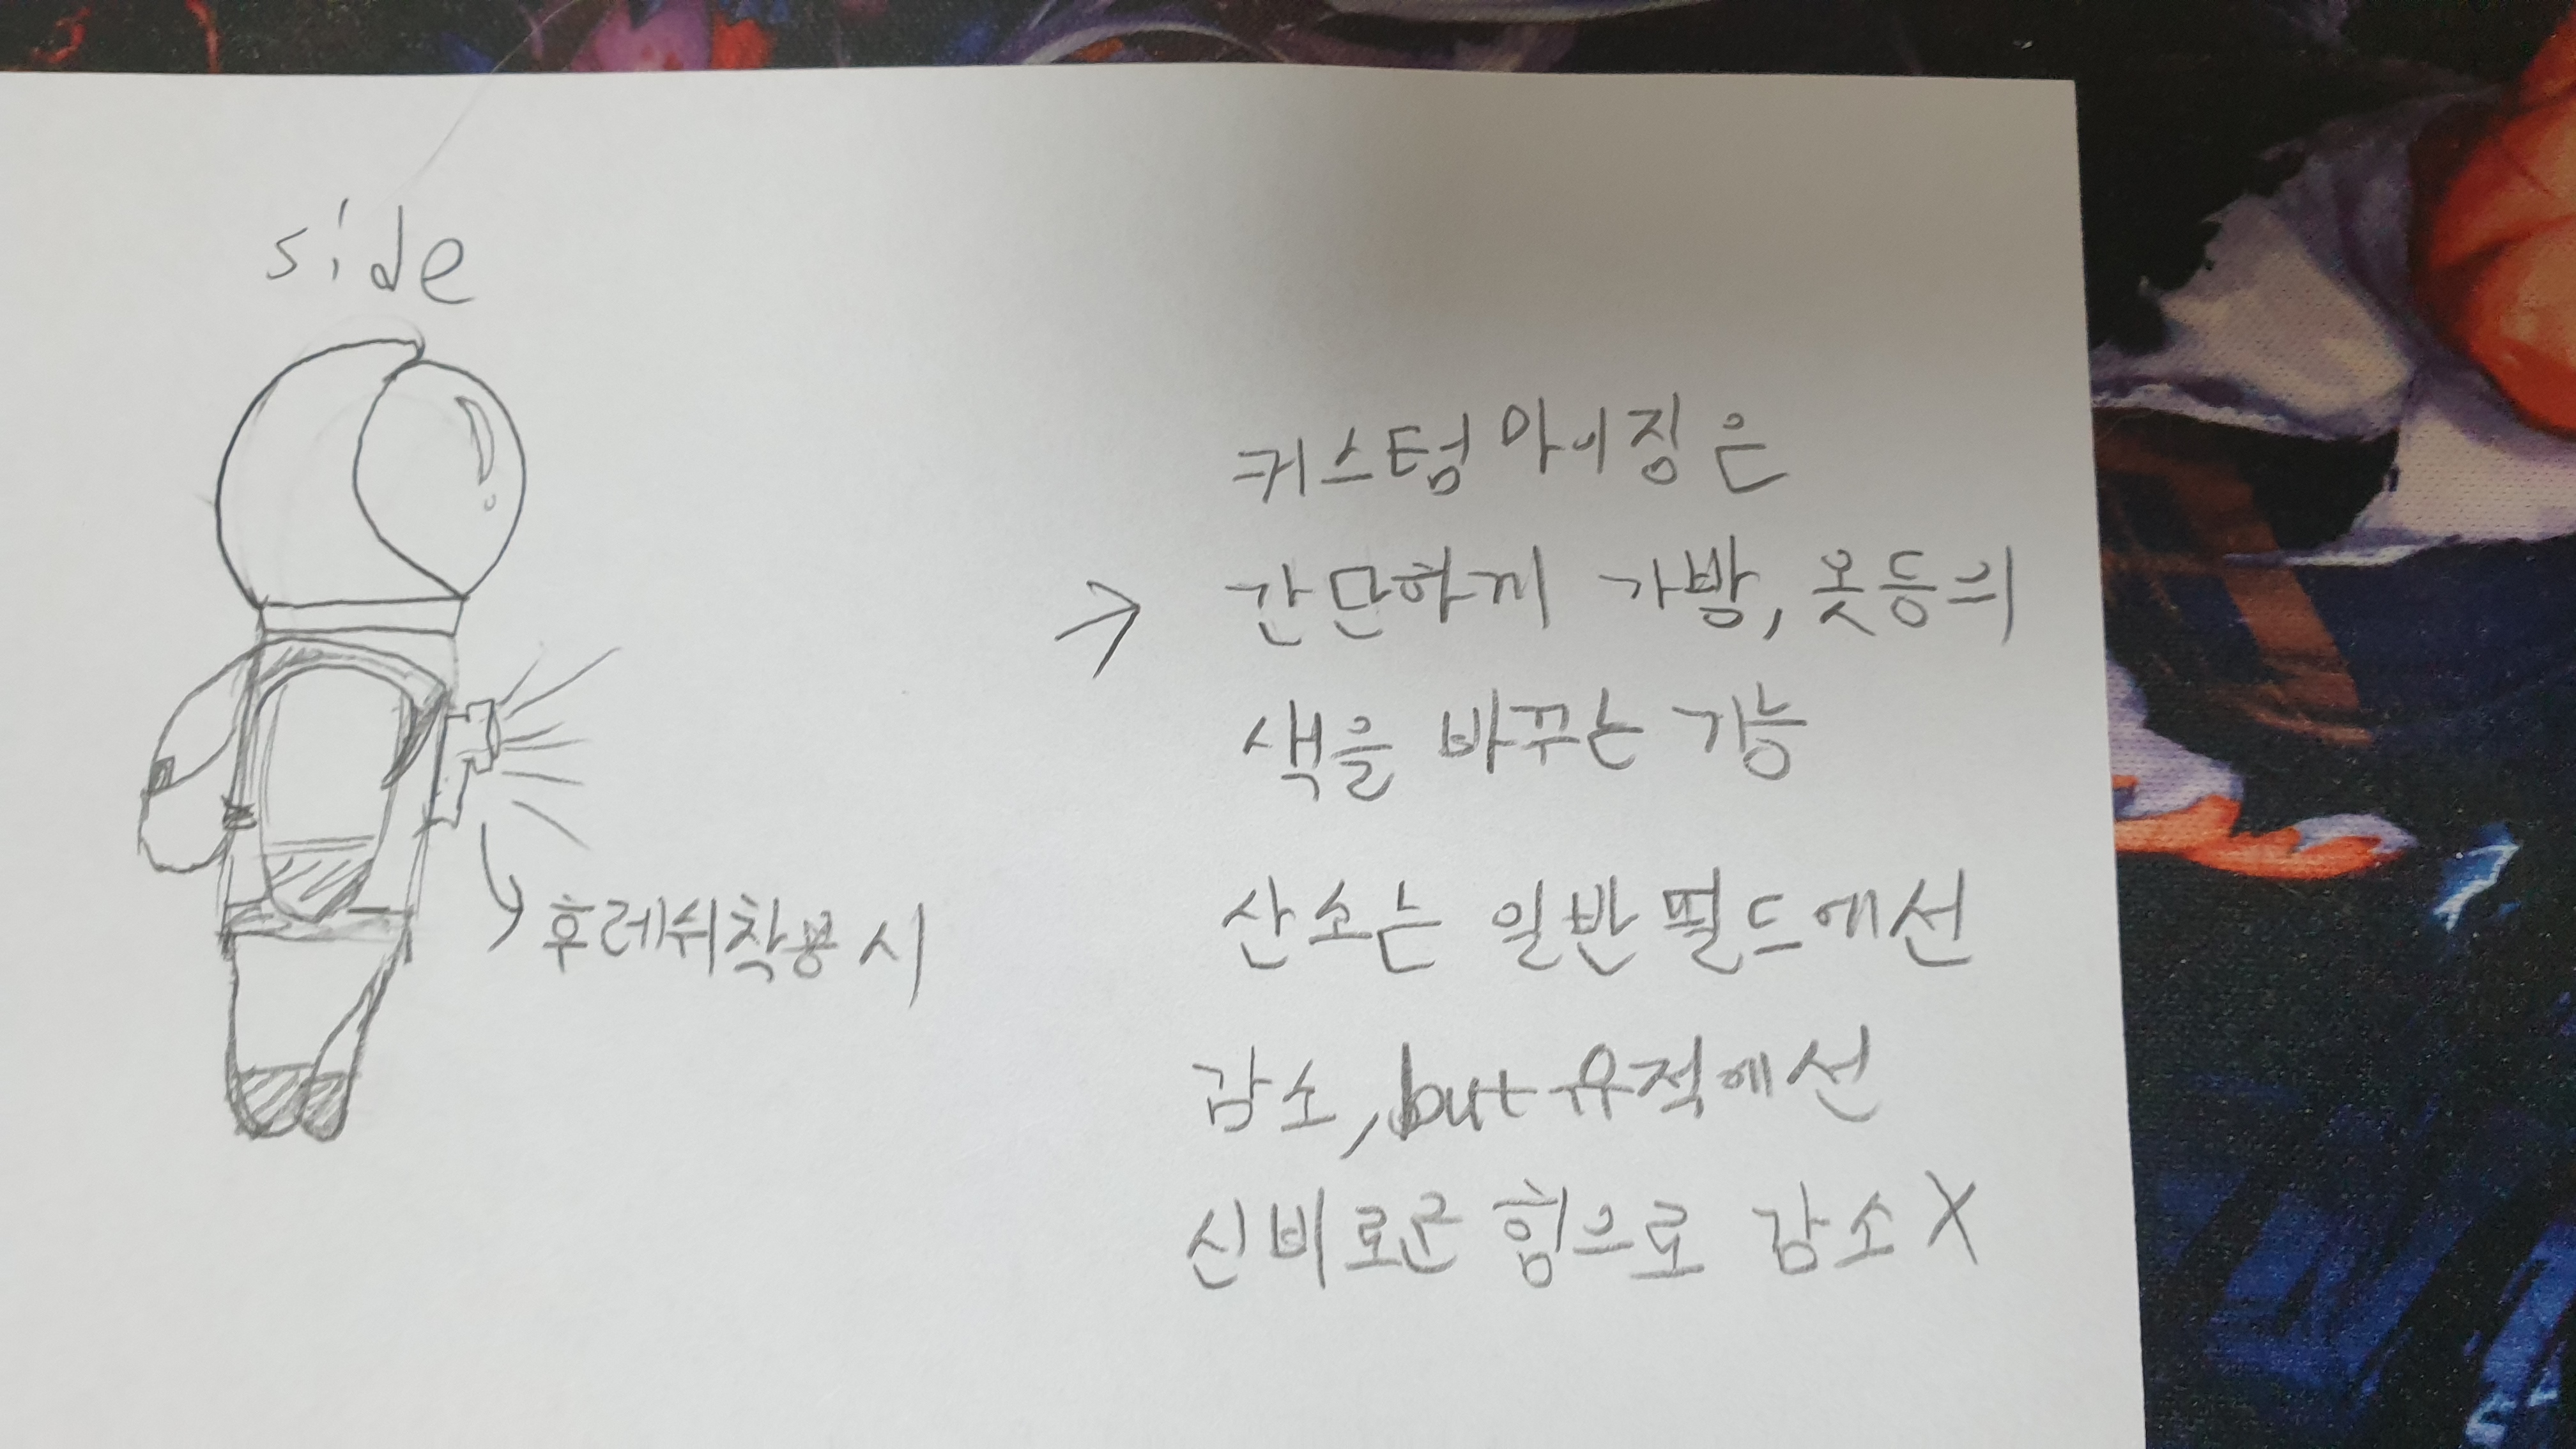 side
후레쉬착용 시
커스텀 마이징은
→ 간단하게 가방, 옷등의
색을 바꾸는 기능
산소는 일반필드에선
감소, but 유적에선
신비로운 힘으로 감소 X